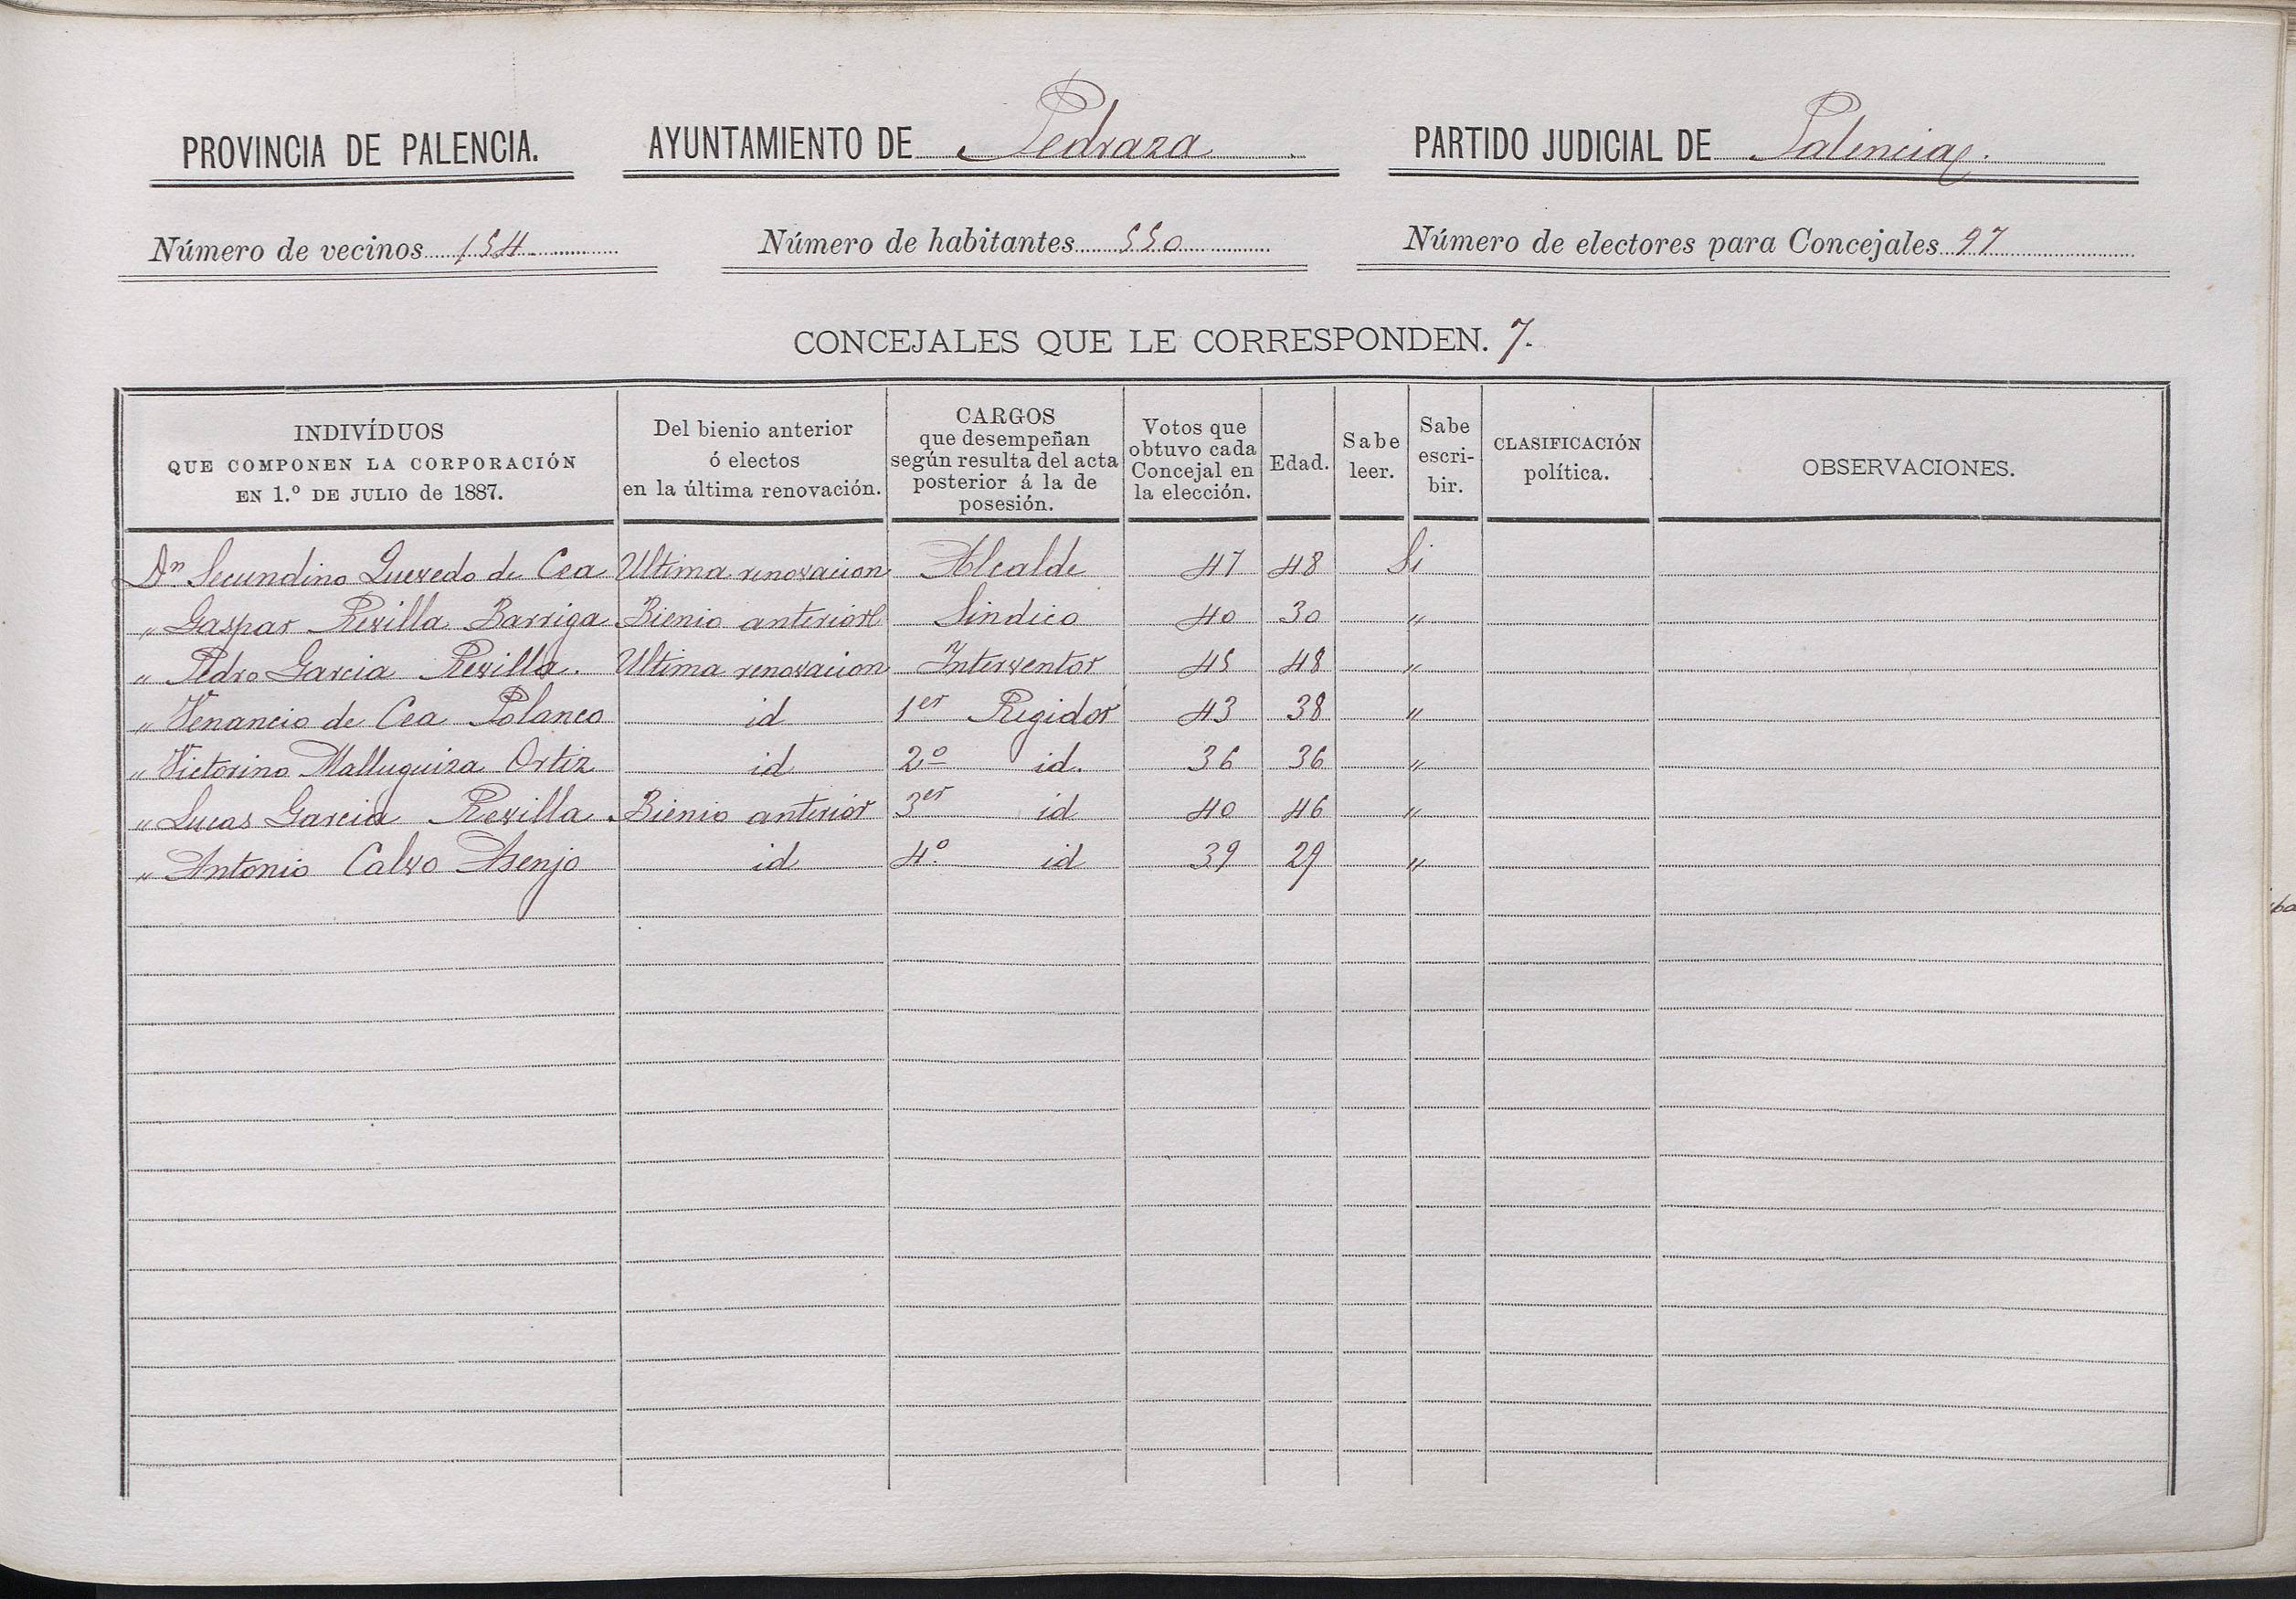 PROVINCIA DE PALENCIA. AYUNTAMIENTO DE Pedraza PARTIDO JUDICIAL DE Palencia.
Número de vecinos 154 Número de habitantes 550 Número de electores para Concejales 97
CONCEJALES QUE LE CORRESPONDEN. 7.
INDIVÍDUOS QUE COMPONEN LA CORPORACIÓN EN 1.º DE JULIO de 1887. Del bienio anterior ó electos en la última renovación. CARGOS que desempeñan según resulta del acta posterior á la de posesión. Votos que obtuvo cada Concejal en la elección. Edad. Sabe leer. Sabe escri- bir. CLASIFICACIÓN política. OBSERVACIONES.
Dn Secundino Quevedo de Cea Ultima renovacion Alcalde 47 48 Si
" Gaspar Revilla Barriga Bienio anterior Sindico 40 30 "
" Pedro Garcia Revilla. Ultima renovacion Interventor 45 48 "
" Venancio de Cea Polanco id 1er Regidor 43 38 "
" Victorino Malluguiza Ortiz id 2º id. 36 36 "
" Lucas Garcia Revilla Bienio anterior 3er id 40 46 "
" Antonio Calvo Asenjo id 4º id 39 29 "